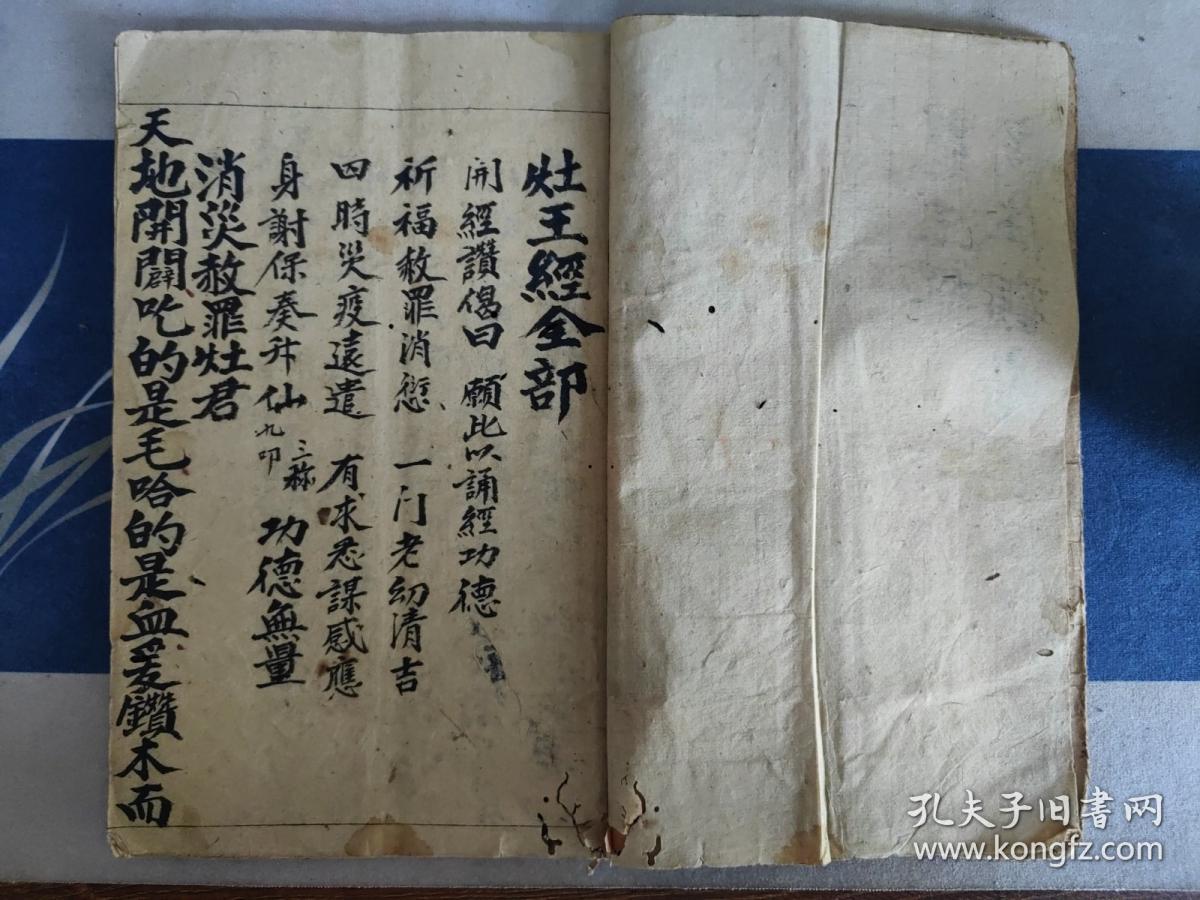 灶王經全部
開經讚偈曰 願此以誦經功德
祈福赦罪消愆 一门老幼清吉
四時災疫遠遣 有求悉謀感應
身謝保奏升仙 九叩 三称 功德無量
消災赦罪灶君
天地開闢吃的是毛哈的是血爰鑽木而
孔夫子旧書网
www.kongfz.com